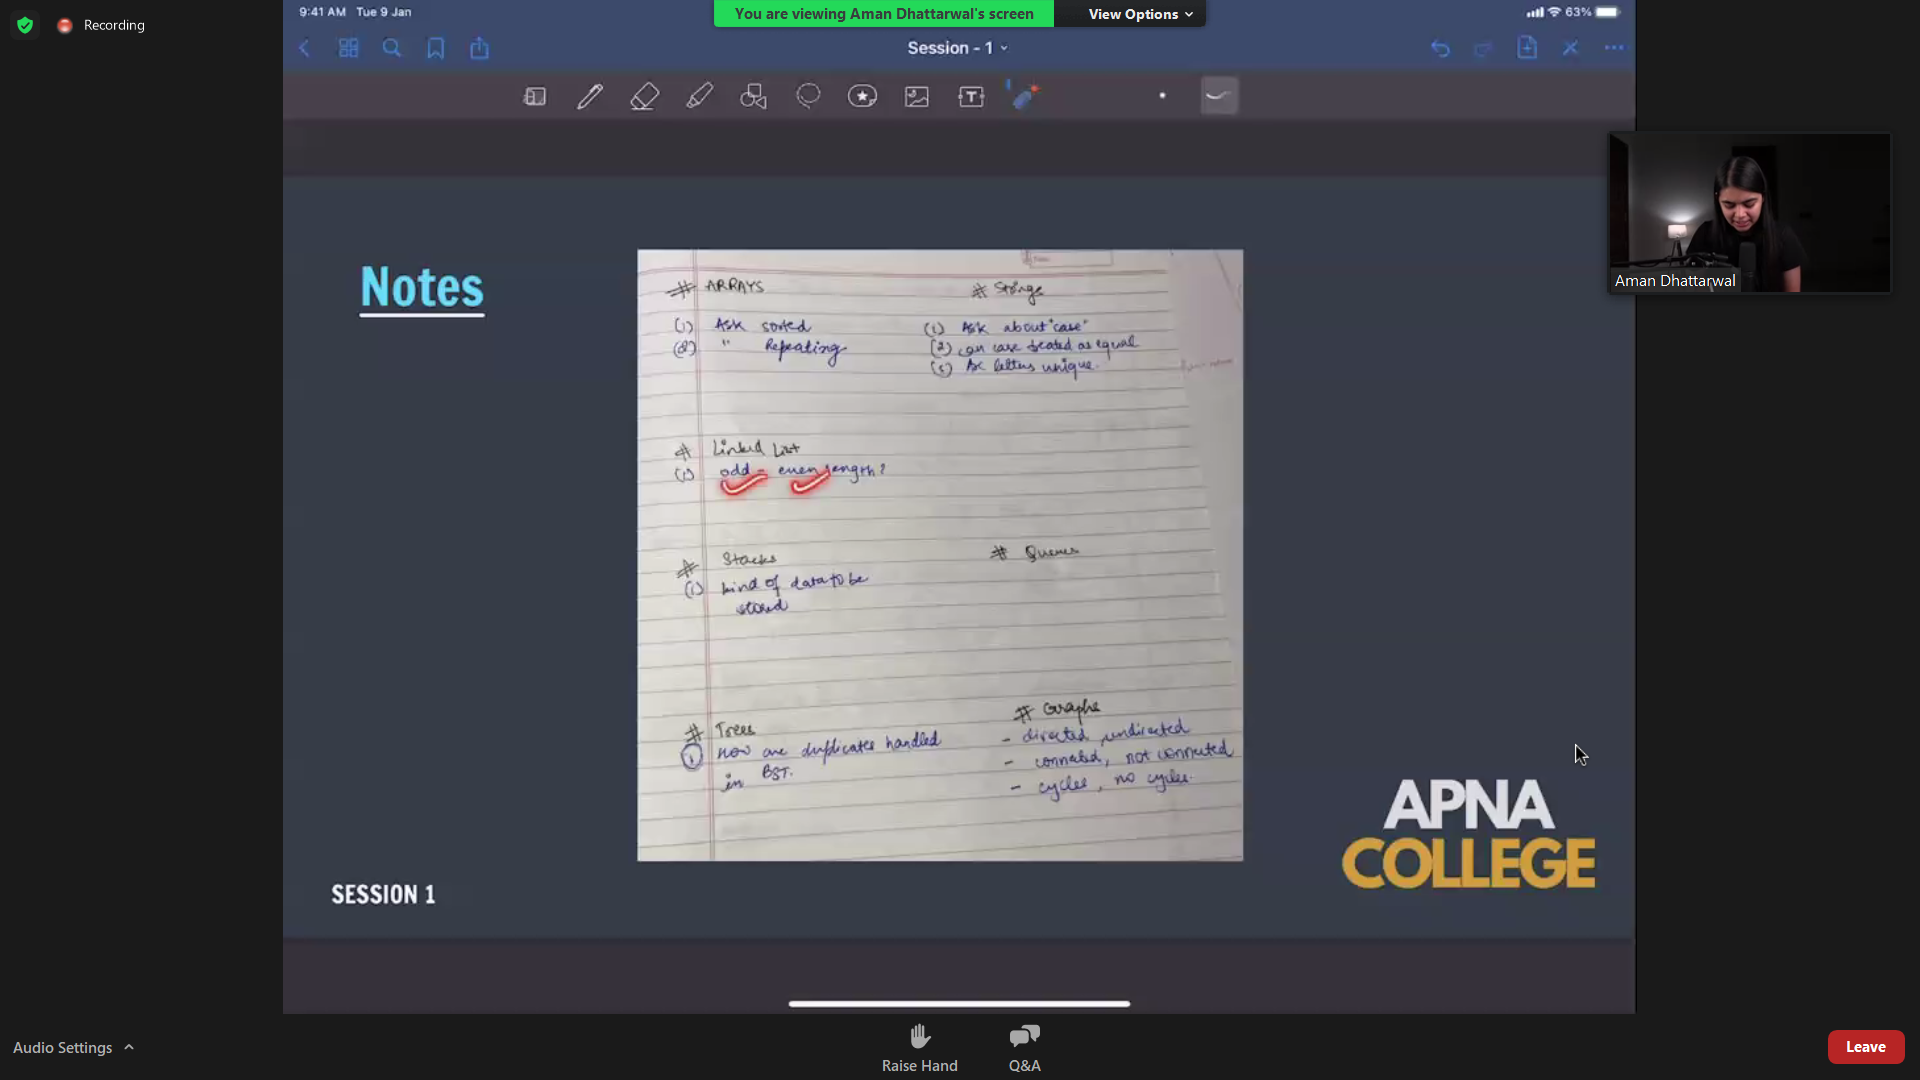 Recording
9:41 AM Tue 9 Jan
You are viewing Aman Dhattarwal's screen
View Options
63%
Session - 1
Notes
# ARRAYS
(1) Ask sorted
(2) " Repeating
# Strings
(1) Ask about "case"
(2) can case treated as equal
(3) Are letters unique.
# Linked List
(1) odd - even length?
# Stacks
(1) kind of data to be
stored
# Queues
# Trees
(1) How are duplicates handled
in BST.
# Graphs
- directed, undirected
- connected, not connected
- cycles, no cycles.
SESSION 1
APNA
COLLEGE
Aman Dhattarwal
Audio Settings
Raise Hand
Q&A
Leave